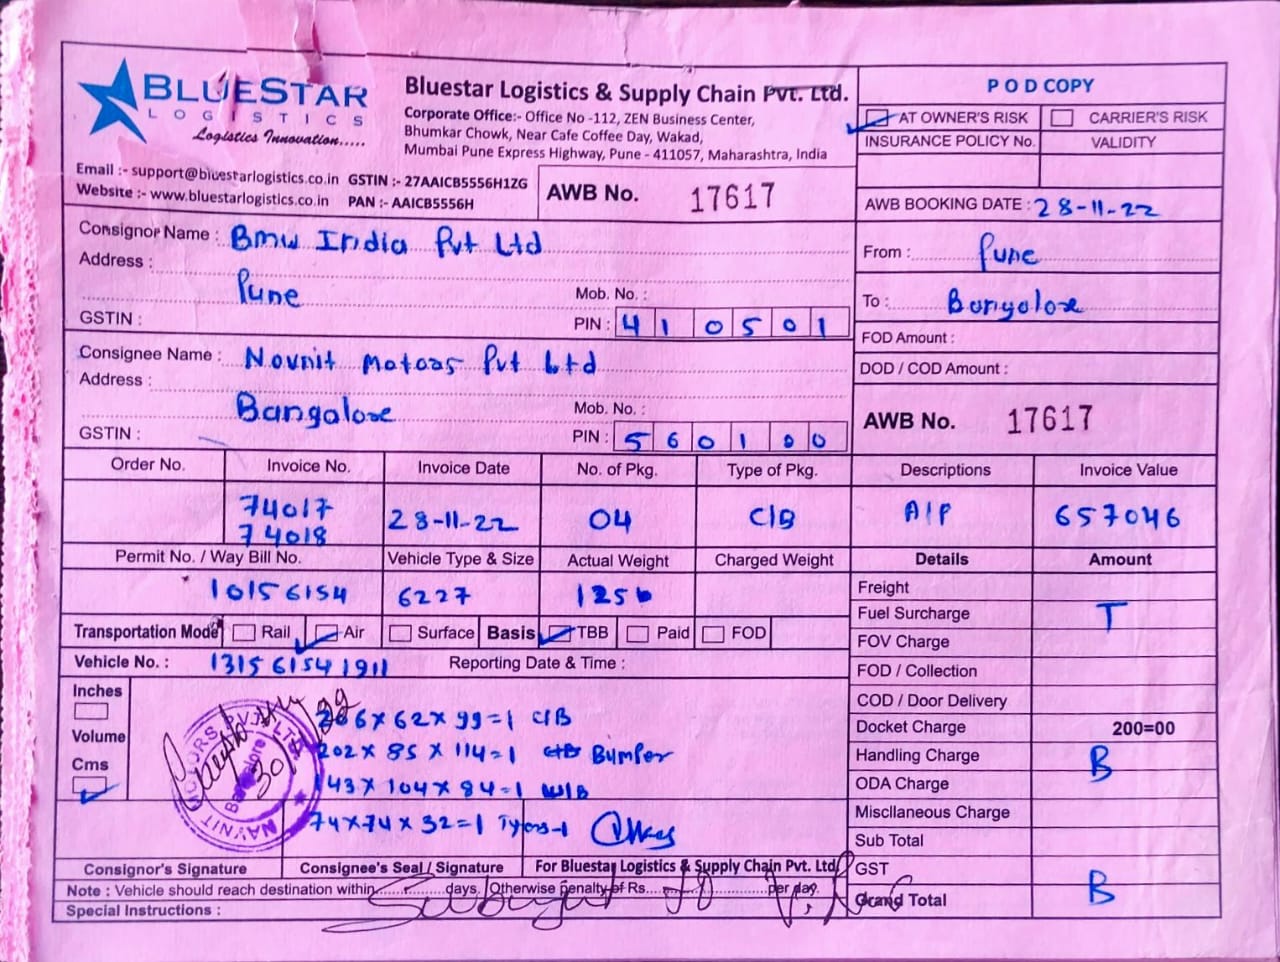 BLUESTAR
LOGISTICS
Logistics Innovation.....
Bluestar Logistics & Supply Chain Pvt. Ltd.
Corporate Office:- Office No -112, ZEN Business Center,
Bhumkar Chowk, Near Cafe Coffee Day, Wakad,
Mumbai Pune Express Highway, Pune - 411057, Maharashtra, India
Email :- support@bluestarlogistics.co.in GSTIN :- 27AAICB5556H1ZG
Website :- www.bluestarlogistics.co.in PAN :- AAICB5556H
AWB No. 17617
POD COPY
AT OWNER'S RISK CARRIER'S RISK
INSURANCE POLICY No. VALIDITY
AWB BOOKING DATE : 28-11-22
Consignor Name : Bmw India Pvt Ltd
Address :
Pune
Mob. No. :
GSTIN :
PIN : 410501
From : Pune
To : Bangalore
FOD Amount :
DOD / COD Amount :
Consignee Name : Novnit Motors Pvt Ltd
Address :
Bangalore
Mob. No. :
GSTIN :
PIN : 560100
AWB No. 17617
Order No. Invoice No. Invoice Date No. of Pkg. Type of Pkg. Descriptions Invoice Value
74017
74018 28-11-22 04 C/B A/P 657046
Permit No. / Way Bill No. Vehicle Type & Size Actual Weight Charged Weight Details Amount
10156154 6227
Freight
Fuel Surcharge T
FOV Charge
FOD / Collection
COD / Door Delivery
Docket Charge 200=00
Handling Charge B
ODA Charge
Miscllaneous Charge
Sub Total
GST
Grand Total B
Transportation Mode Rail Air Surface Basis TBB Paid FOD
Vehicle No. : 131561541911 Reporting Date & Time :
Inches
Volume
Cms
62x99=1 C/B
202x85x114=1 Bumper
143x104x84=1 W/B
74x74x32=1
NAVNIT MOTORS PVT. LTD.
Bangalore
Consignor's Signature Consignee's Seal / Signature For Bluestar Logistics & Supply Chain Pvt. Ltd
Note : Vehicle should reach destination within days. Otherwise penalty of Rs. per day.
Special Instructions :